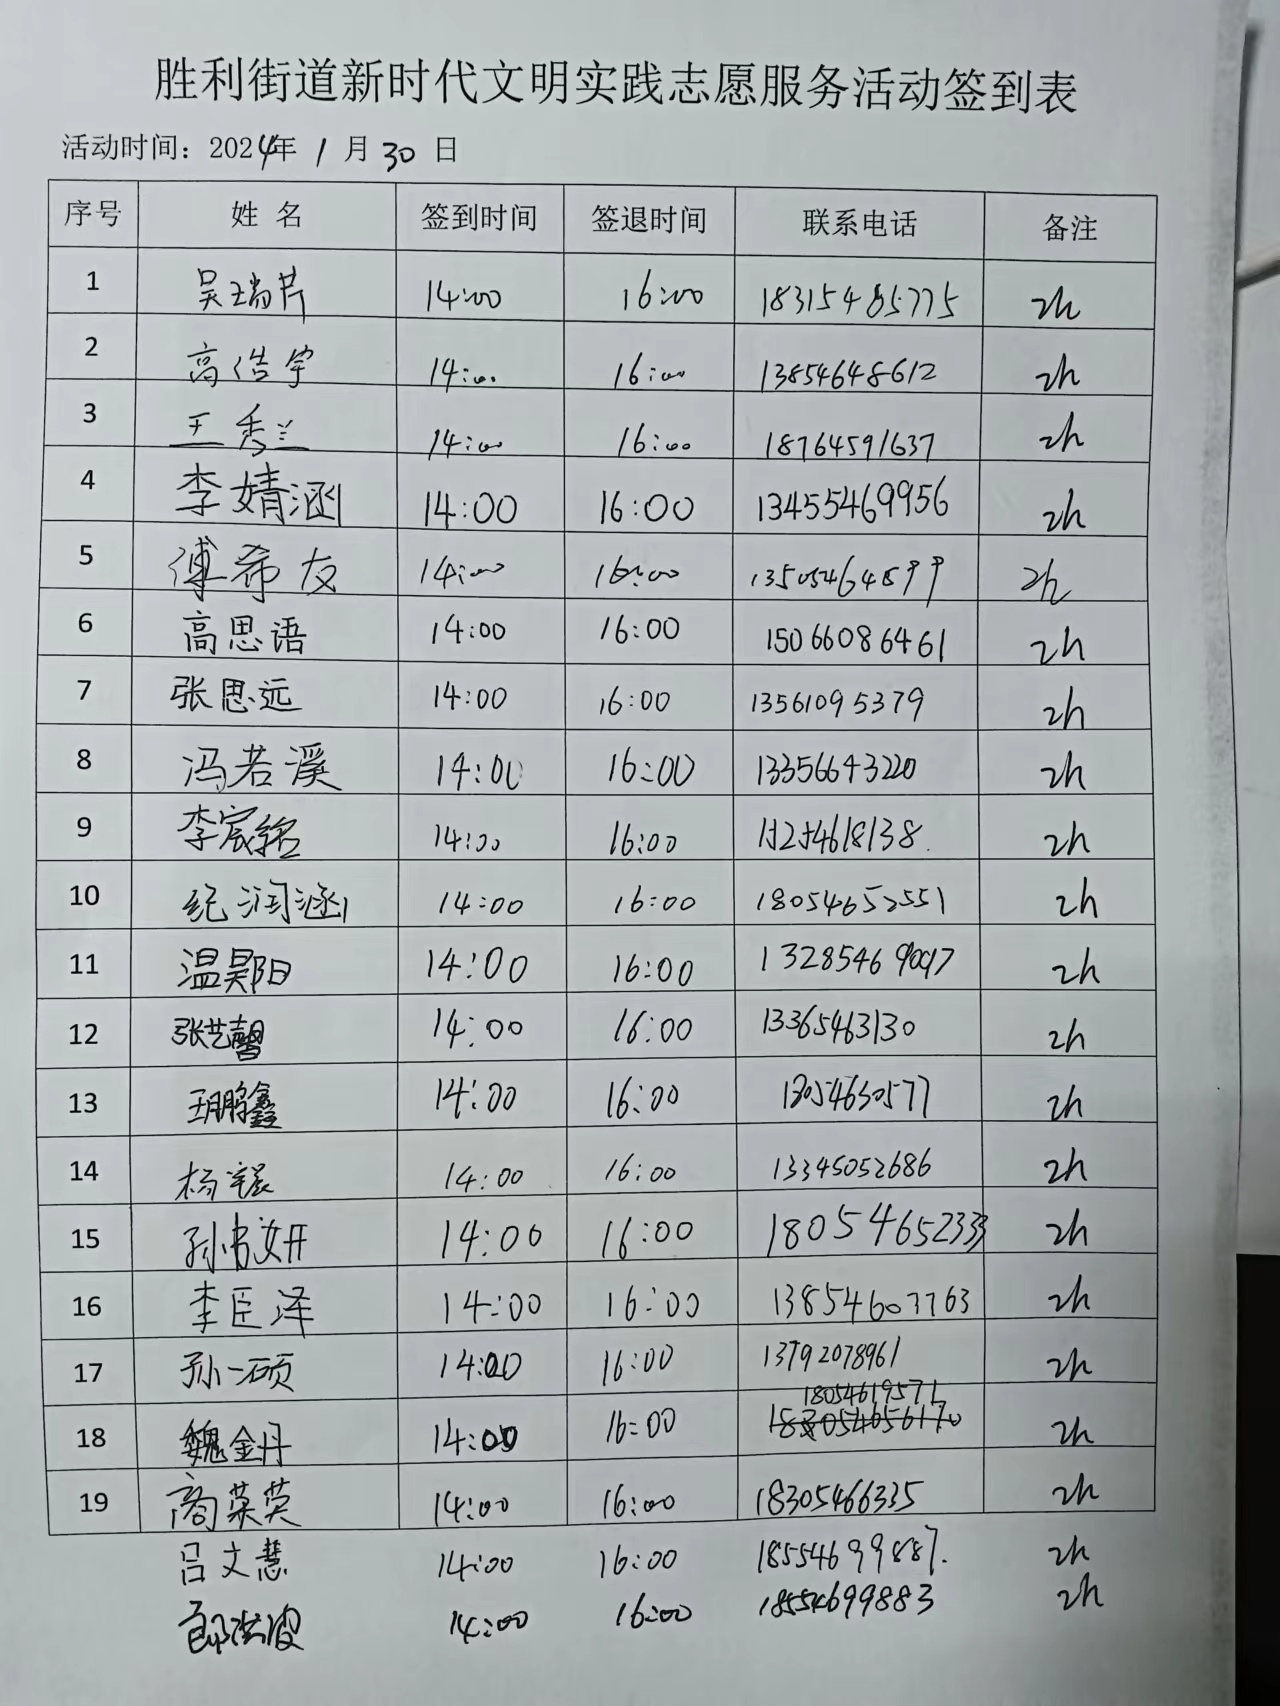 胜利街道新时代文明实践志愿服务活动签到表
活动时间：2024年 1 月 30 日
序号 姓 名 签到时间 签退时间 联系电话 备注
1 吴瑞芹 14:00 16:00 18315485775 2h
2 高信宇 14:00 16:00 13854648612 2h
3 王秀兰 14:00 16:00 18764591637 2h
4 李婧涵 14:00 16:00 13455469956 2h
5 傅希友 14:00 16:00 13505464899 2h
6 高思语 14:00 16:00 15066086461 2h
7 张思远 14:00 16:00 13561095379 2h
8 冯若溪 14:00 16:00 13356643220 2h
9 李宸铭 14:00 16:00 15254618138 2h
10 纪润涵 14:00 16:00 18054652551 2h
11 温昊阳 14:00 16:00 13285469097 2h
12 张艺馨 14:00 16:00 13365463130 2h
13 王鹏鑫 14:00 16:00 2h
14 杨宸 14:00 16:00 13345052686 2h
15 14:00 16:00 18054652333 2h
16 李臣泽 14:00 16:00 13854607763 2h
17 孙一硕 14:00 16:00 13792078961 2h
18054619571
18 魏金丹 14:00 16:00 2h
19 商荣英 14:00 16:00 18305466335 2h
吕文慧 14:00 16:00 18554699887. 2h
14:00 16:00 18554699883 2h